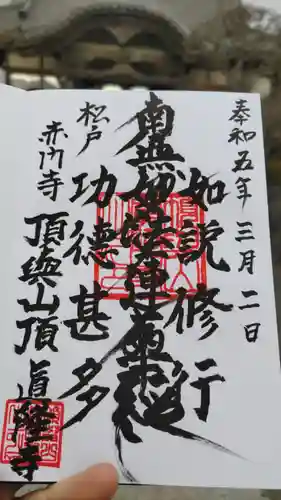 奉和五年三月二日
如説修行
南無妙法蓮華経
松戸
功徳甚多
赤門寺
頂興山頂
眞隆寺